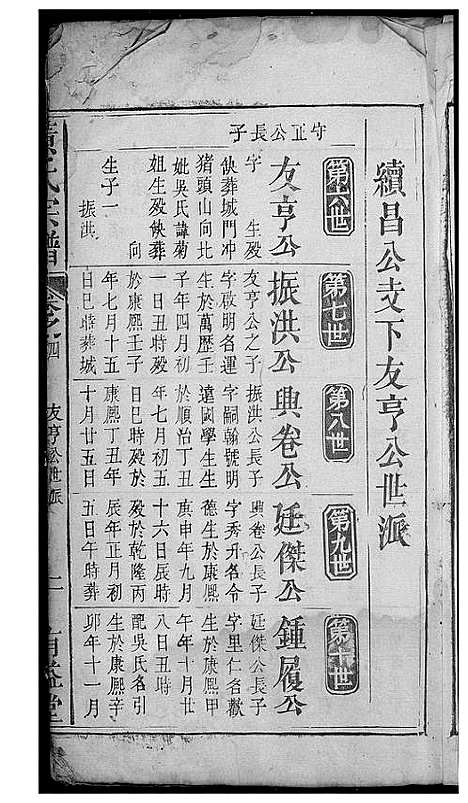 續昌公支下友亨公世派
第六世
守正公長子
友亨公
字 生歿
佚葬城門冲
猪頭山向比
妣吳氏諱菊
姐生歿佚葬
向
生子一
振洪
第七世
振洪公
友亨公之子
字啟明名運
生於萬歷壬
子年四月初
一日丑時歿
於康熙壬子
年七月十五
日巳時葬城
第八世
興卷公
振洪公長子
字嗣翰號明
遠國學生生
於順治丁丑
年七月初五
日巳時歿於
康熙丁丑年
十月廿五日
第九世
廷傑公
興卷公長子
字秀升名令
德生於康熙
庚申年九月
十六日辰時
歿於乾隆丙
辰年正月初
五日午時葬
第十世
鍾履公
廷傑公長子
字里仁名歡
生於康熙甲
午年十月廿
八日丑時
配吳氏名引
生於康熙辛
卯年十一月
氏宗譜
卷之四
友亨公世派
二